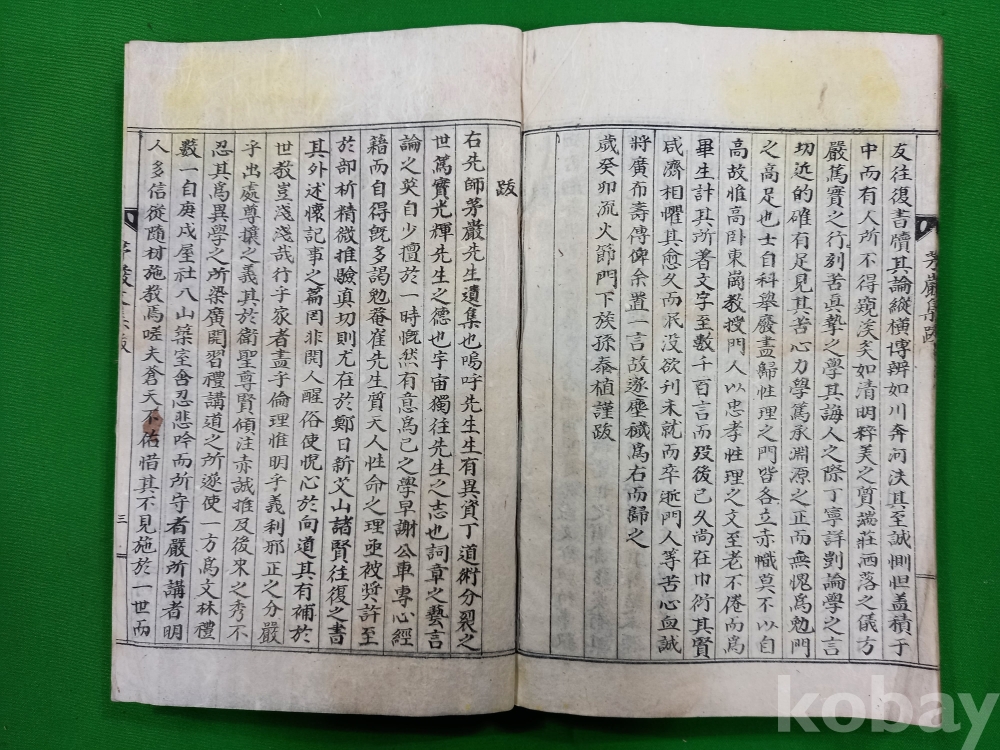 友往復書牘其論縱橫博辨如川奔河決其至誠惻怛盖積于
中而有人所不得窺涘矣如清明粹美之質端莊洒落之儀方
嚴篤實之行刻苦眞摯之學其誨人之際丁寧詳剴論學之言
切近的確有足見其苦心力學篤承淵源之正而無愧爲勉門
之高足也士自科舉廢盡歸性理之門皆各立赤幟莫不以自
高故惟高卧東崗教授門人以忠孝性理之文至老不倦而爲
畢生計其所著文字至數千百言而歿後已久尚在巾衍其賢
咸濟相懼其愈久而泯没欲刊未就而卒逝門人等苦心血誠
將廣布壽傳俾余置一言故遂塵穢爲右而歸之
歲癸卯流火節門下族孫泰植謹跋
茅巖集跋
跋
右先師茅巖先生遺集也嗚呼先生生有異資丁道術分裂之
世篤實光輝先生之德也宇宙獨往先生之志也詞章之藝言
論之英自少擅於一時慨然有意爲己之學早謝公車專心經
籍而自得旣多謁勉菴崔先生質天人性命之理亟被奬許至
於部析精微推驗眞切則尤在於鄭日新艾山諸賢往復之書
其外述懷記事之篇罔非開人醒俗使悅心於向道其有補於
世教豈淺淺哉行乎家者盡乎倫理惟明乎義利邪正之分嚴
乎出處尊攘之義其於衛聖尊賢傾注赤誠推及後來之秀不
忍其爲異學之所染廣開習禮講道之所遂使一方爲文林禮
藪一自庚戌屋社入山築室含忍悲吟而所守者嚴所講者明
人多信從隨材施教焉嗟夫蒼天不佑惜其不見施於一世而
茅巖集跋
三
kobay